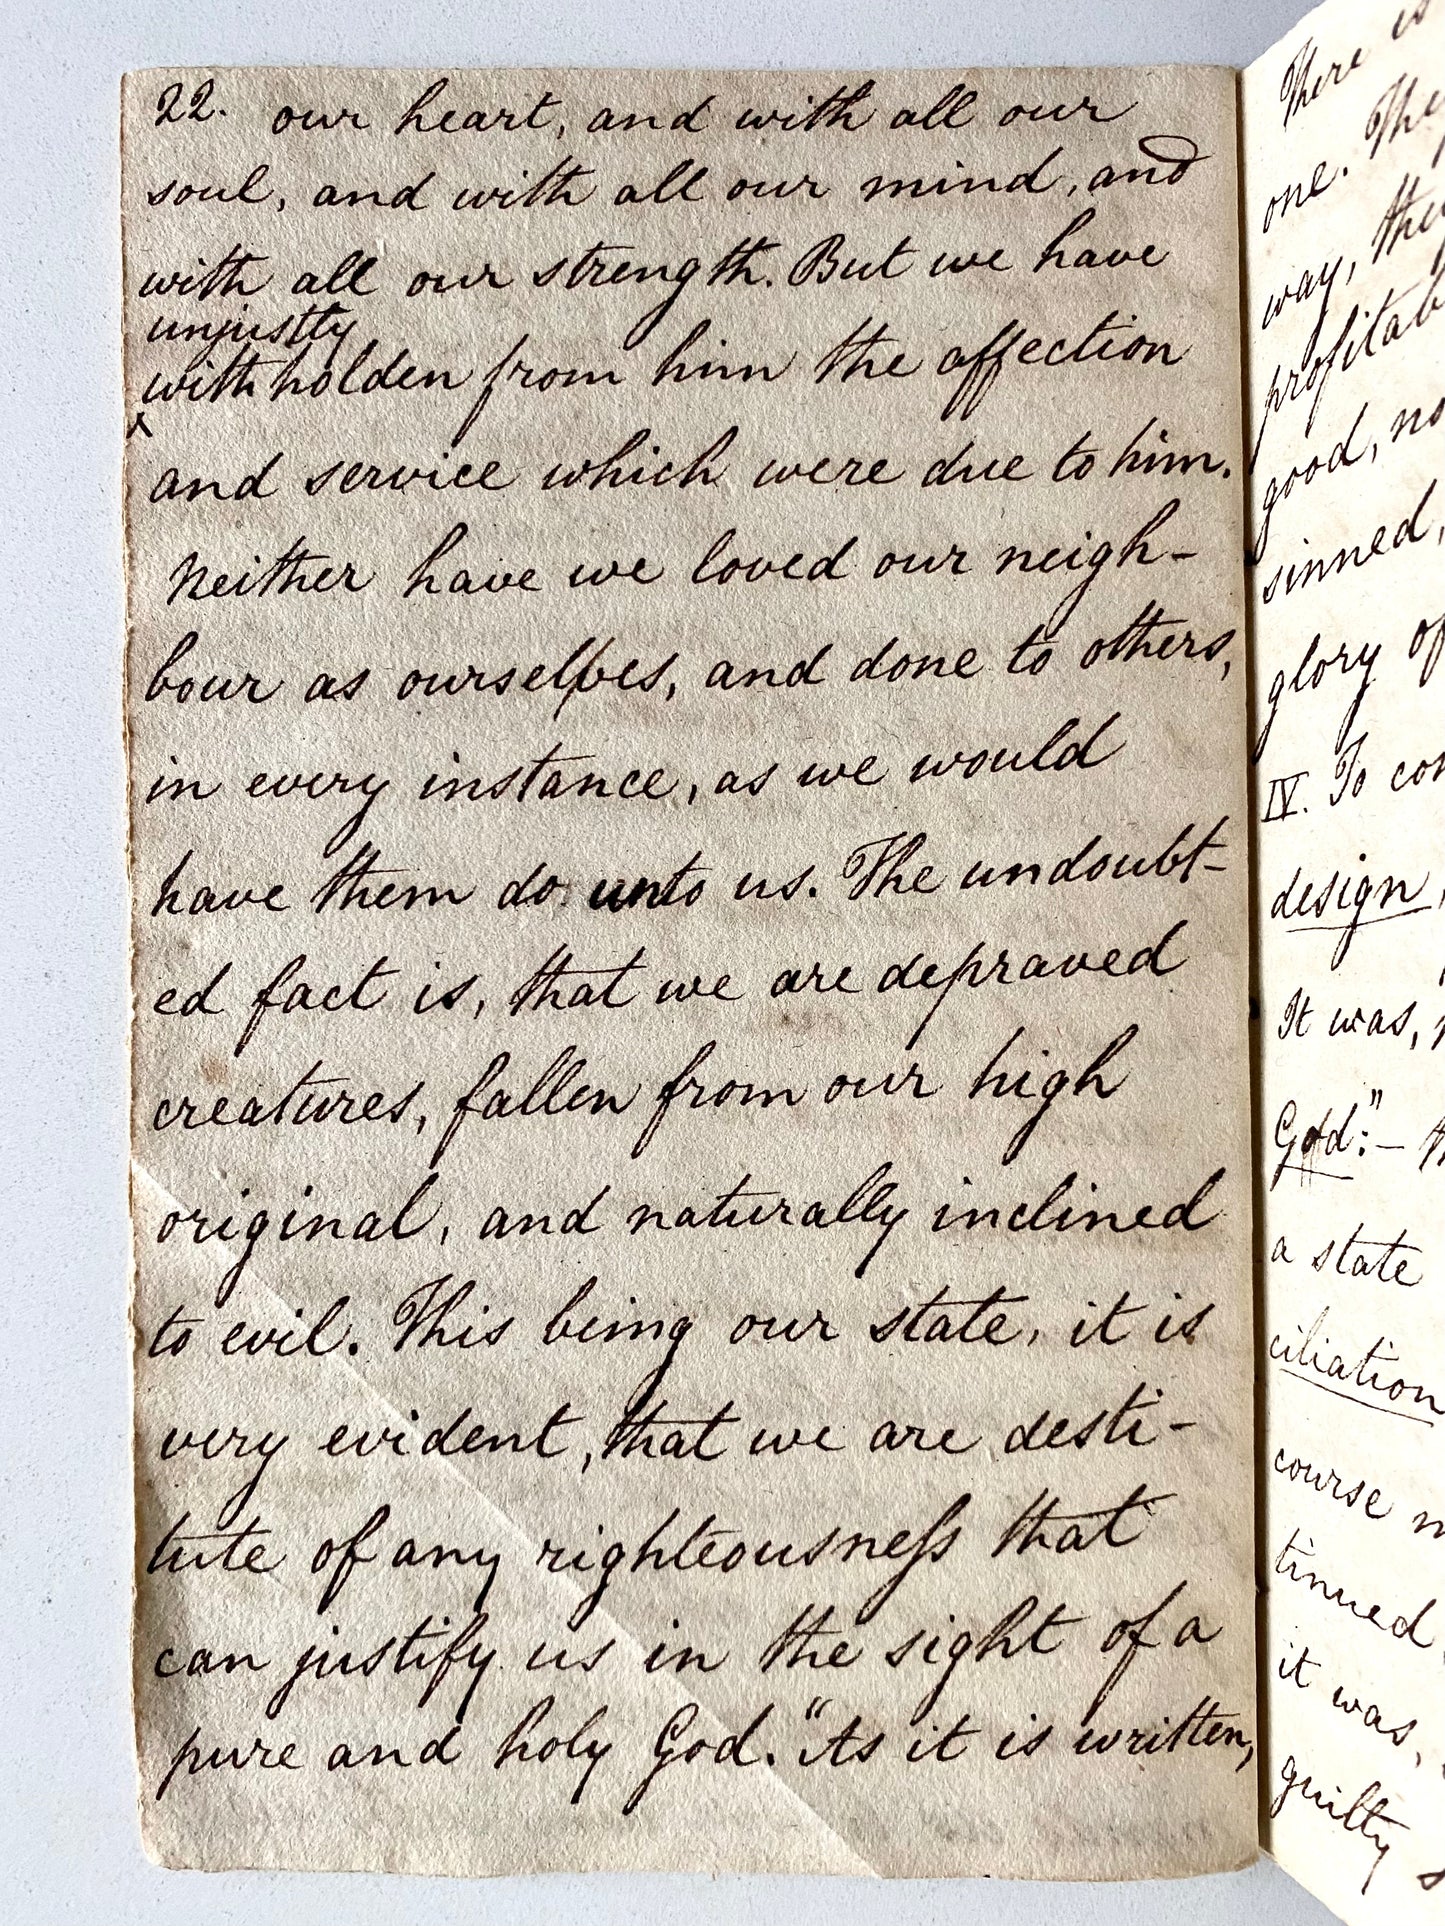 22. our heart, and with all our
soul, and with all our mind, and
with all our strength. But we have
unjustly
withholden from him the affection
^
and service which were due to him.
Neither have we loved our neigh-
bour as ourselves, and done to others,
in every instance, as we would
have them do unto us. The undoubt-
ed fact is, that we are depraved
creatures, fallen from our high
original, and naturally inclined
to evil. This being our state, it is
very evident, that we are desti-
tute of any righteousneſs that
can justify us in the sight of a
pure and holy God. "As it is written,
There is
one. They
way, they
good, no
sinned,
glory of
IV. To
design,
It was,
God":—
a state
ciliation
course
tinued
it was,
guilty